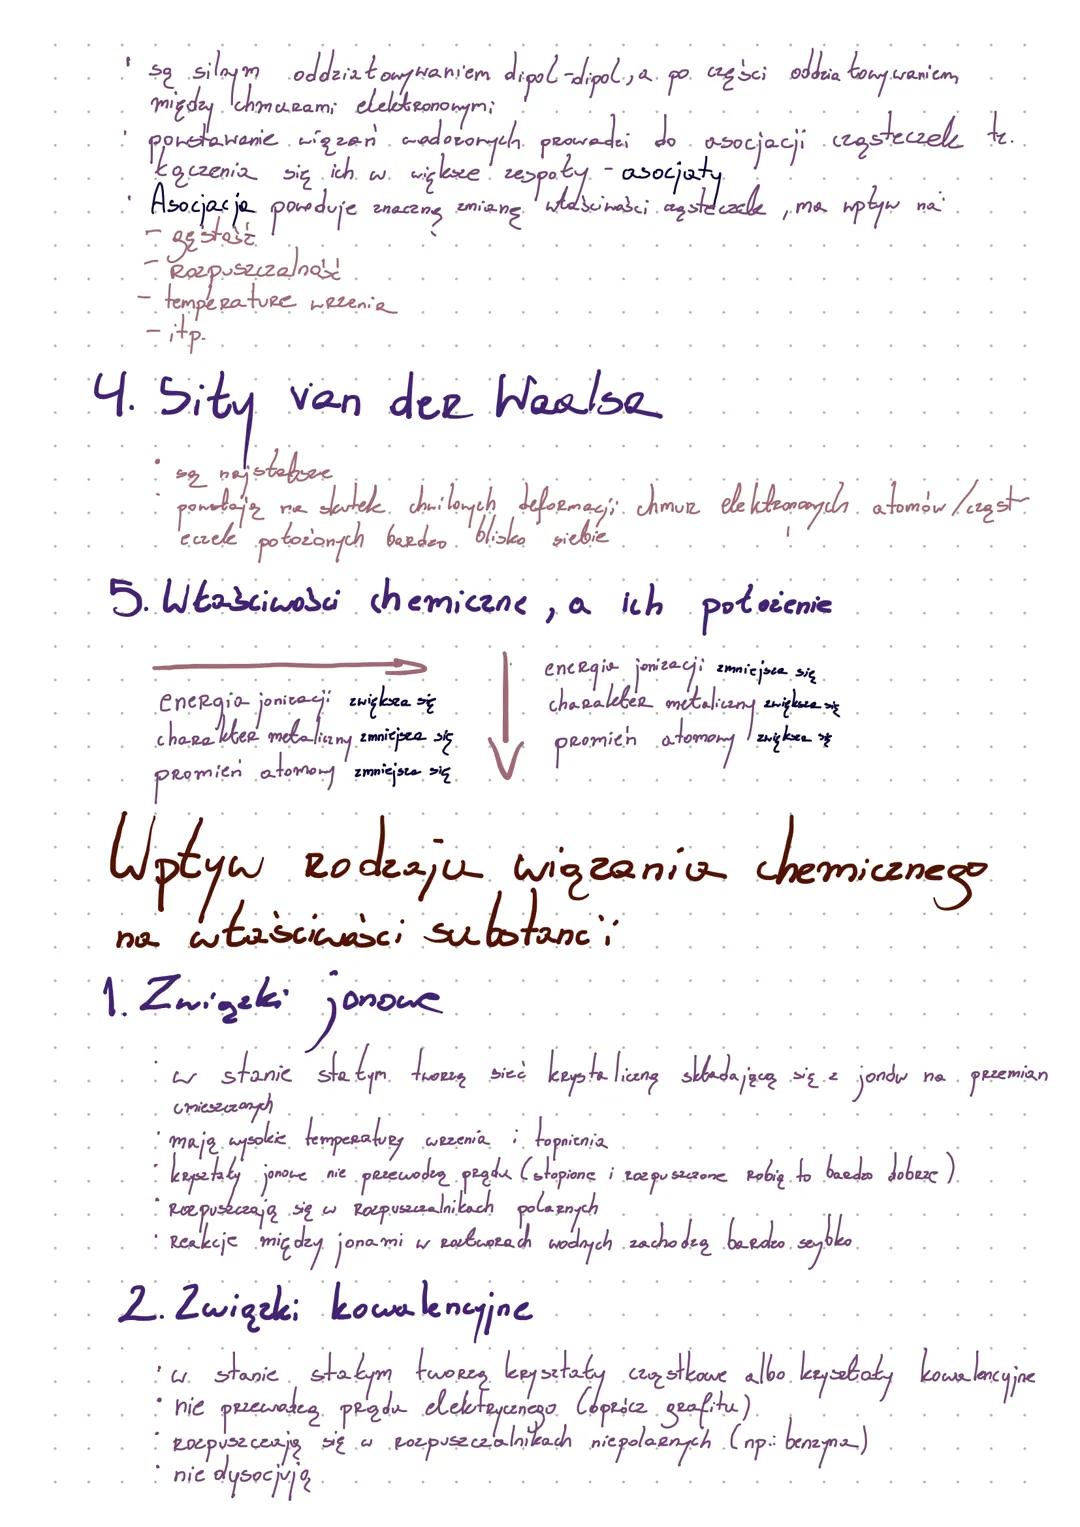 są silnym oddziaływaniem dipol-dipol, a po części oddziaływaniem
między chmurami elektronowymi
powstawanie wiązań wodorowych prowadzi do asocjacji cząsteczek tz.
łączenia się ich w większe zespoły - asocjaty
Asocjacja powoduje znaczną zmianę właściwości cząsteczek, ma wpływ na:
- gęstość
- rozpuszczalność
- temperaturę wrzenia
- itp.
4. Siły van der Waalsa
są najsłabsze
powstają na skutek chwilowych deformacji chmur elektronowych atomów/cząst-
eczek położonych bardzo blisko siebie
5. Właściwości chemiczne, a ich położenie
energia jonizacji zwiększa się
charakter metaliczny zmniejsza się
promień atomowy zmniejsza się
energia jonizacji zmniejsza się
charakter metaliczny zwiększa się
promień atomowy zwiększa się
Wpływ rodzaju wiązania chemicznego
na właściwości substancji
1. Związki jonowe
w stanie stałym tworzą sieć krystaliczną składającą się z jonów na przemian
umieszczonych
mają wysokie temperatury wrzenia i topnienia
kryształy jonowe nie przewodzą prądu (stopione i rozpuszczone robią to bardzo dobrze)
rozpuszczają się w rozpuszczalnikach polarnych
reakcje między jonami w roztworach wodnych zachodzą bardzo szybko
2. Związki kowalencyjne
w stanie stałym tworzą kryształy cząstkowe albo kryształy kowalencyjne
nie przewodzą prądu elektrycznego (oprócz grafitu)
rozpuszczają się w rozpuszczalnikach niepolarnych (np.: benzyna)
nie dysocjują